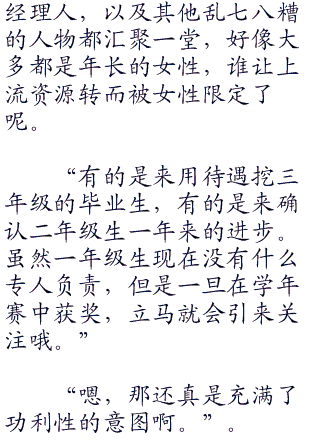 经理人，以及其他乱七八糟
的人物都汇聚一堂，好像大
多都是年长的女性，谁让上
流资源转而被女性限定了
呢。
“有的是来用待遇挖三
年级的毕业生，有的是来确
认二年级生一年来的进步。
虽然一年级生现在没有什么
专人负责，但是一旦在学年
赛中获奖，立马就会引来关
注哦。”
“嗯，那还真是充满了
功利性的意图啊。”。